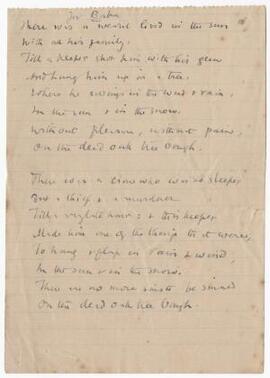 For Baba
There was a weasel lived in the sun
With all his family,
Till a keeper shot him with his gun
And hung him up in a tree,
Where he swings in the wind & rain,
In the sun & in the snow,
Without pleasure, without pain,
On the dead oak tree bough.
There was a crow who was no sleeper
But a thief & a murderer
Till a very late hour: & this keeper
Made him one of the things tht were,
To hang & flap in rain & wind,
In the sun & in the snow.
There are no more sins to be sinned
On the dead oak tree bough.